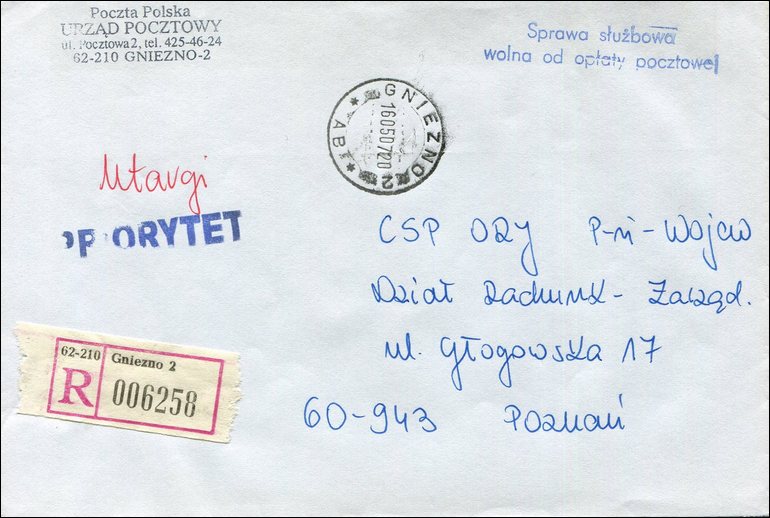 Poczta Polska
URZĄD POCZTOWY
ul. Pocztowa 2, tel. 425-46-24
62-210 GNIEZNO-2
Sprawa służbowa
wolna od opłaty pocztowej
GNIEZNO 2
ABI
16050720
Utargi
PRIORYTET
CSP ORY P-ń - Wojew
Dział Rachunk - Zarząd.
ul. Głogowska 17
60-943 Poznań
62-210 Gniezno 2
R 006258